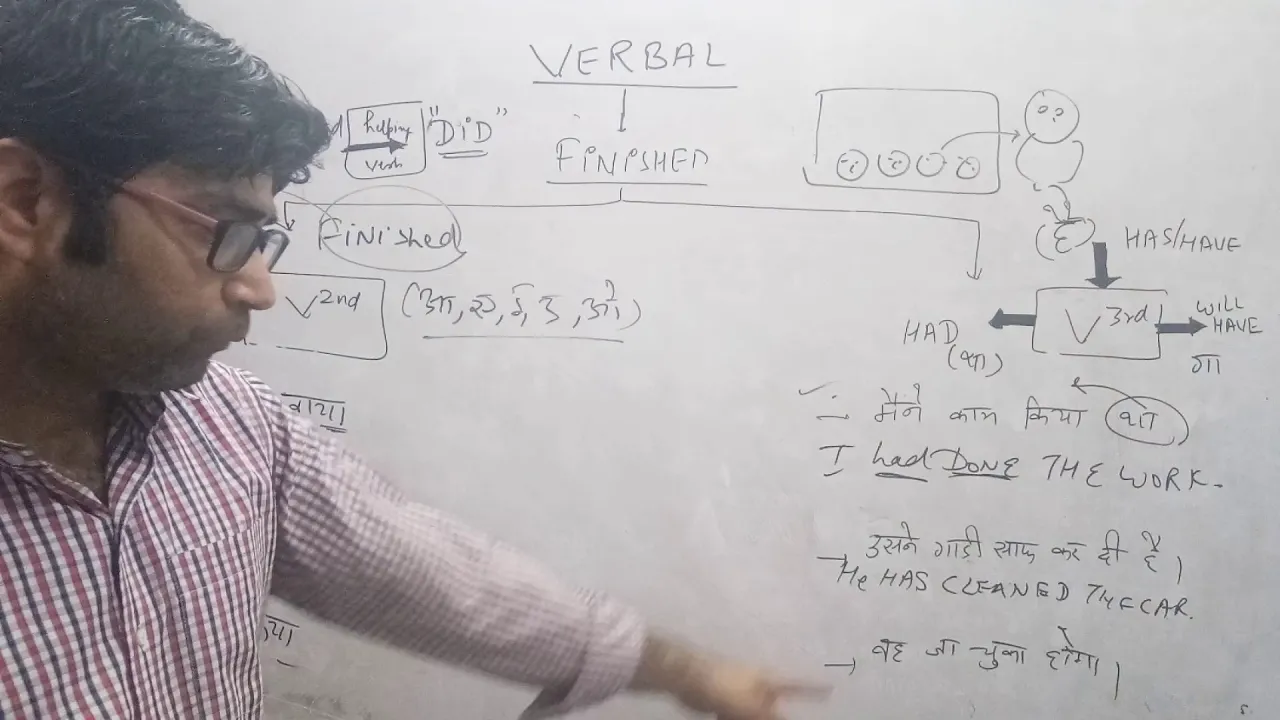 VERBAL
helping
verb
"DiD"
FINISHED
Finished
HAS/HAVE
V 2nd
(आ, ए, ई, ई, ओ)
HAD
(था)
V 3rd
WILL
HAVE
गा
मैने काम किया था
I had DONE THE WORK.
→ उसने गाडी साफ कर दी है।
He HAS CLEANED THE CAR.
→ वह जा चुका होगा।